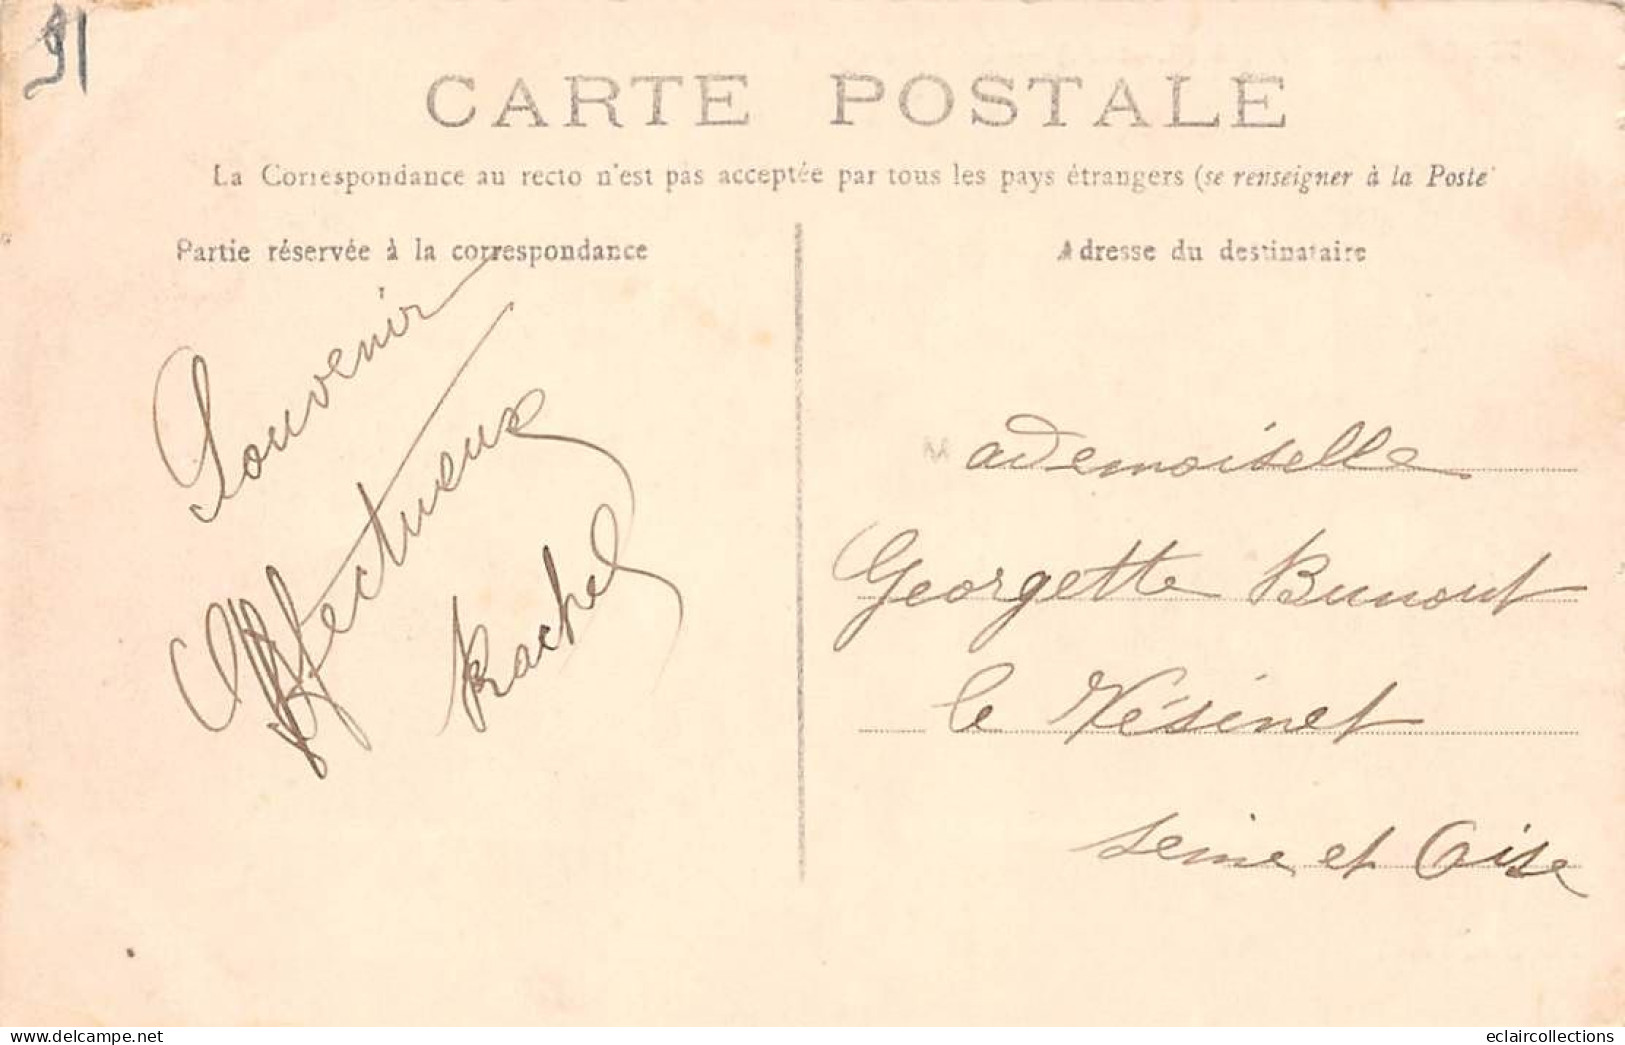 91
CARTE POSTALE
La Correspondance au recto n'est pas acceptée par tous les pays étrangers (se renseigner à la Poste)
Partie réservée à la correspondance
Souvenir
Affectueux
Rachel
Adresse du destinataire
Mademoiselle
Georgette Bunout
le Vésinet
Seine et Oise
delcampe.net
eclaircollections